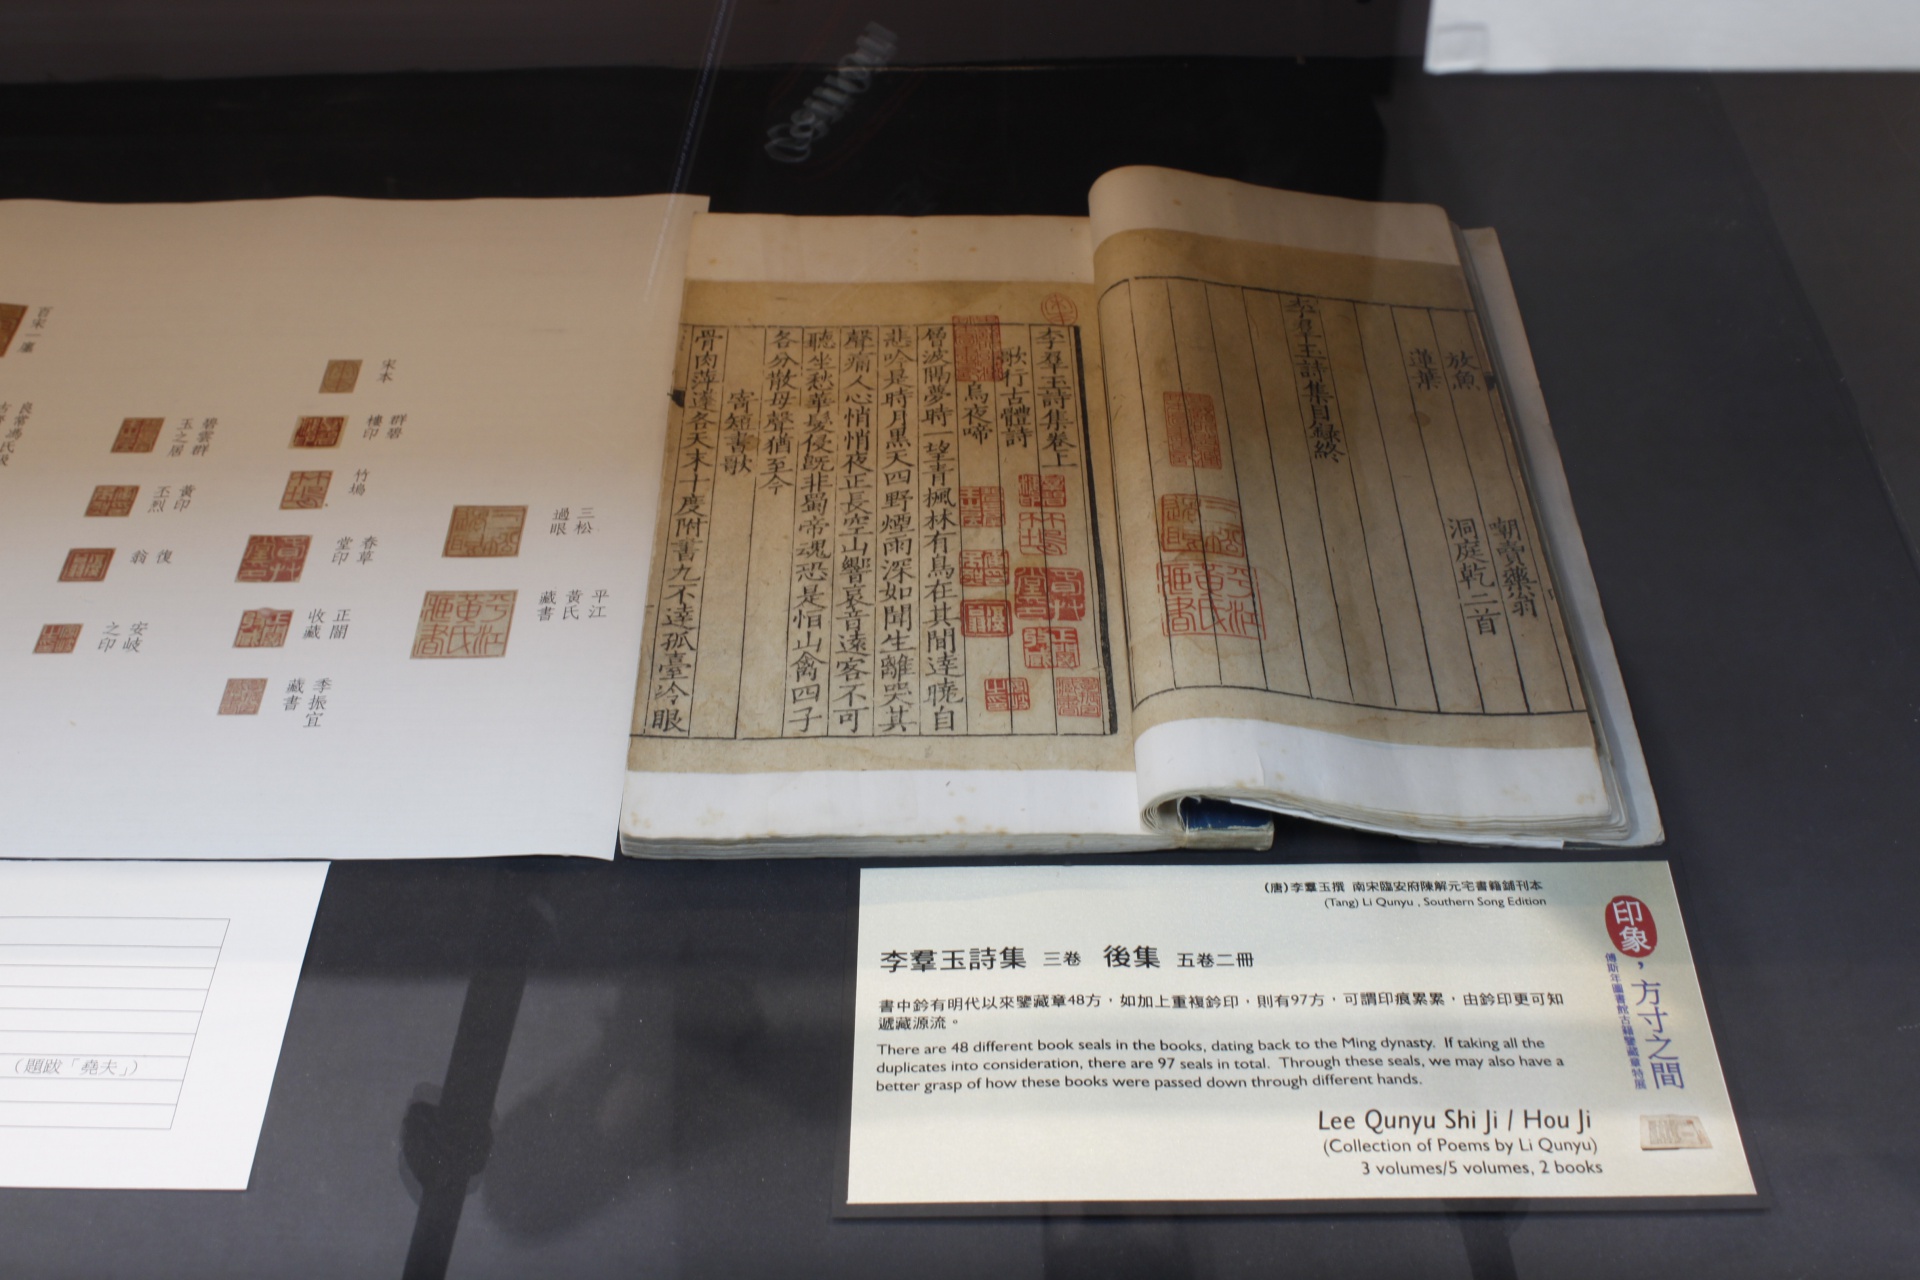 李羣玉詩集卷上
歌行古體詩
烏夜啼
曾波隔夢時一望青楓林有鳥在其間達曉自
悲吟是時月黑天四野煙雨深如聞生離哭其
聲痛人心悄悄夜正長空山響哀音遠客不可
聽坐愁華髮侵既非蜀帝魂恐是恒山禽四子
各分散母聲猶至今
寄短書歌
骨肉萍蓬各天末十度附書九不達孤臺冷眼
放魚
蓮葉
朝賣藥翁
洞庭乾二首
李羣玉詩集目録終
宋本
群碧
樓印
竹塢
春草
堂印
正闇
收藏
季振宜
藏書
三松
過眼
平江
黃氏
藏書
碧雲群
玉之居
黃印
丕烈
復
翁
安岐
之印
百宋一廛
(題跋「堯夫」)
(唐)李羣玉撰 南宋臨安府陳解元宅書籍鋪刊本
(Tang) Li Qunyu , Southern Song Edition
李羣玉詩集 三卷 後集 五卷二冊
書中鈐有明代以來鑒藏章48方，如加上重複鈐印，則有97方，可謂印痕累累，由鈐印更可知
遞藏源流。
There are 48 different book seals in the books, dating back to the Ming dynasty. If taking all the
duplicates into consideration, there are 97 seals in total. Through these seals, we may also have a
better grasp of how these books were passed down through different hands.
Lee Qunyu Shi Ji / Hou Ji
(Collection of Poems by Li Qunyu)
3 volumes/5 volumes, 2 books
印象，方寸之間
傅斯年圖書館古籍鑒藏章特展